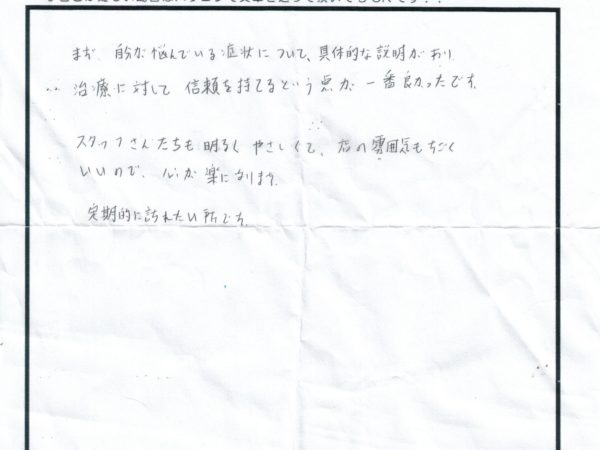 まず、自分が悩んでいる症状について、具体的な説明があり
治療に対して信頼を持てるという点が一番良かったです。
スタッフさんたちも明るくやさしくて、店の雰囲気もすごく
いいので、心が楽になります。
定期的に訪れたい所です。